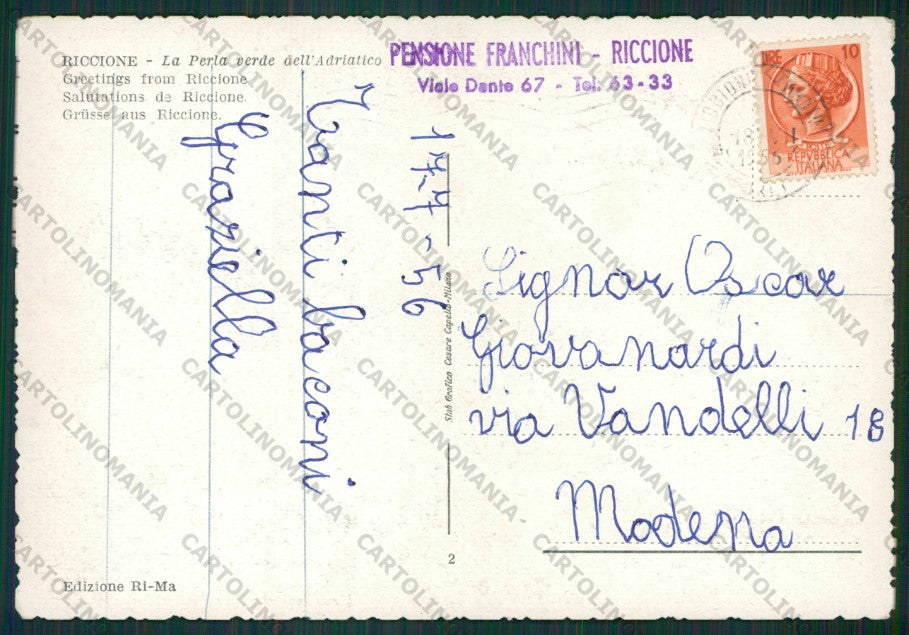 RICCIONE - La Perla verde dell'Adriatico
Greetings from Riccione
Salutations de Riccione
Grüsse aus Riccione.
PENSIONE FRANCHINI - RICCIONE
Viale Dante 67 - Tel. 63-33
LIRE 10
REPVBBLICA
ITALIANA
1956
17-7-56
Tanti baconi
Graziella
Stab Grafico Cesare Capello-Milano
Signor Oscar
Giovanardi
via Vandelli 18
Modena
2
Edizione Ri-Ma
CARTOLINOMANIA